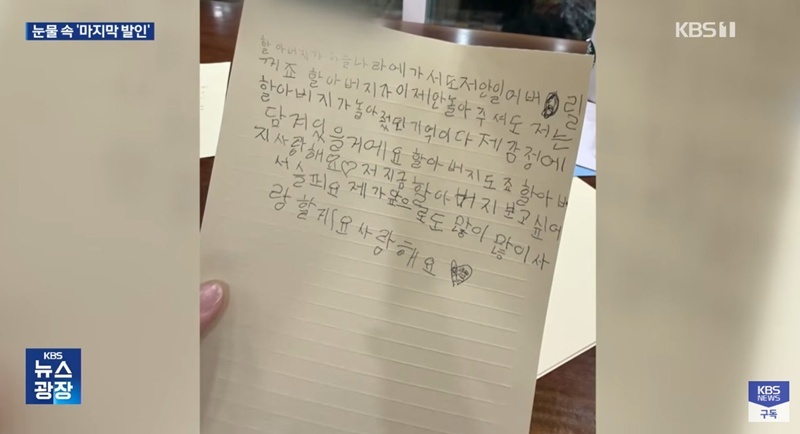 눈물 속 '마지막 발인'
KBS 1
할아버지가 하늘나라에가서도저안일어버릴
꺼죠 할아버지가이제안놀아 주셔도 저는
할아버지가놀아 기억이다 제 감정에
담겨있을거에요 할아버지도죠 할아버
지사랑해요♡ 저지금할아버지보고싶어
서 슬퍼요 제가앞으로도 많이 많이사
랑할게요사랑해요
KBS
뉴스
광장
KBS
NEWS
구독